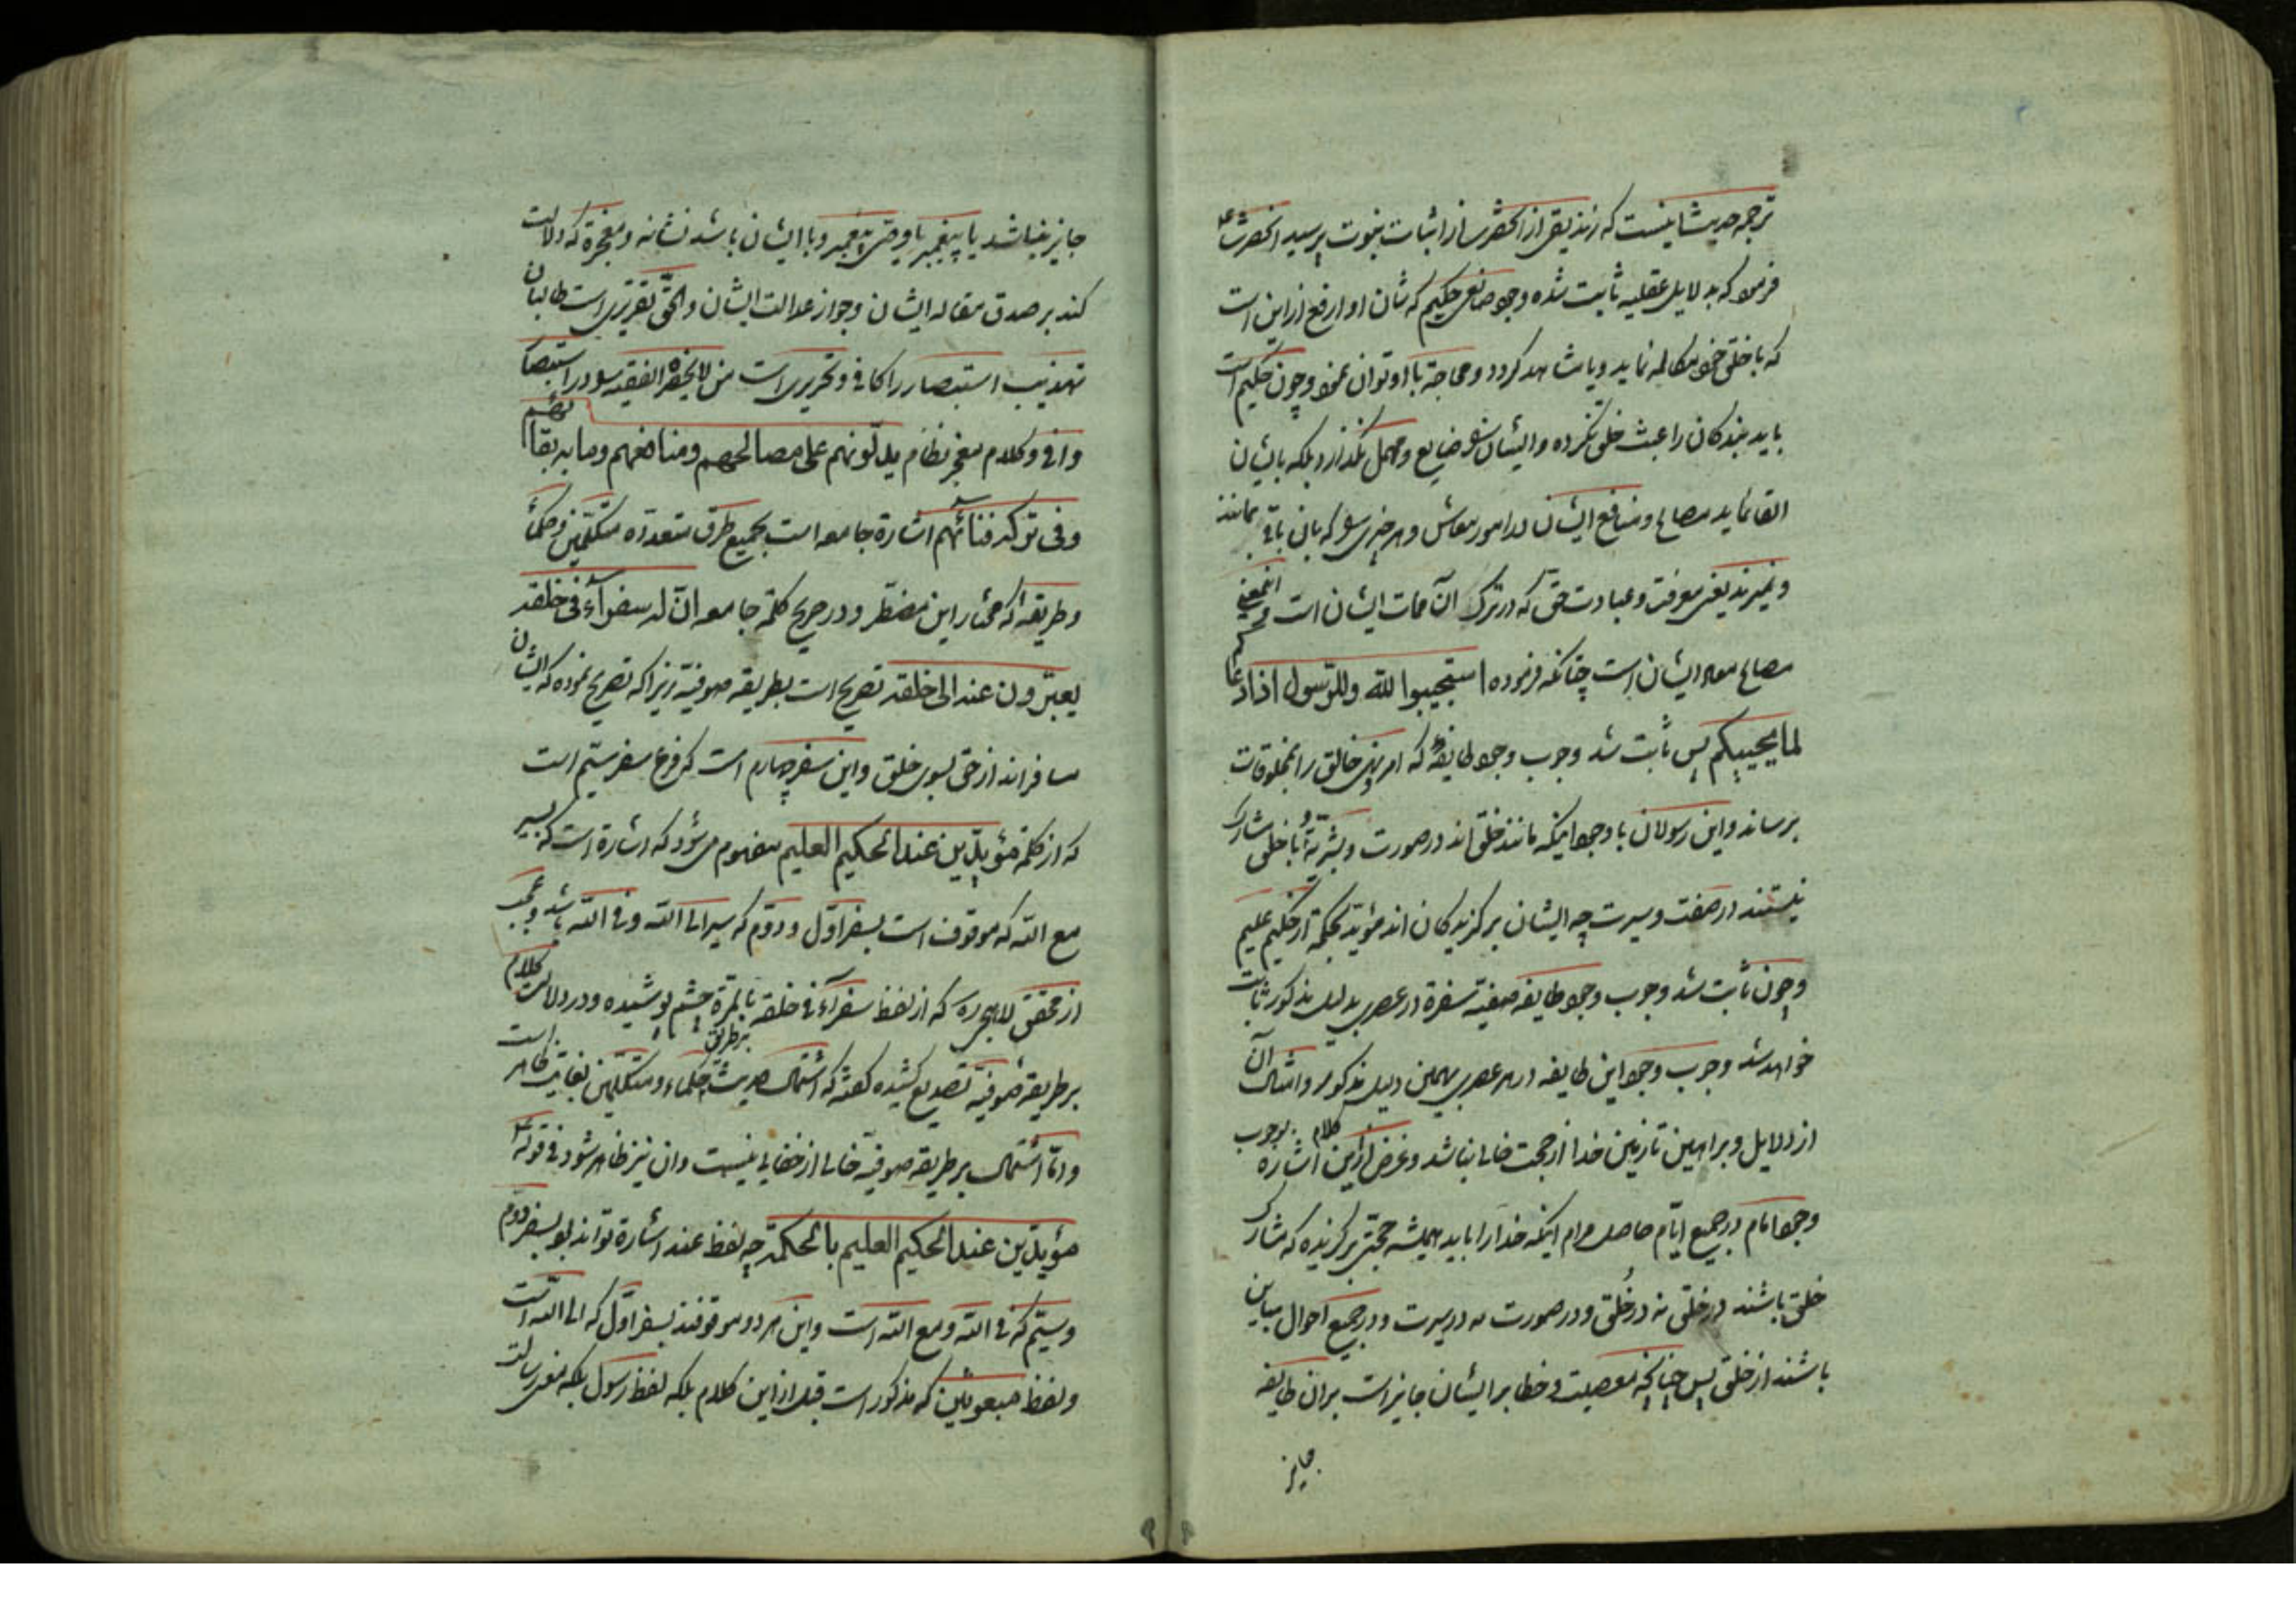 ترجمه حدیث اینست که زندیقی از آنحضرت از اثبات نبوت پرسید آنحضرت ع
فرمود که بدلایل عقلیه ثابت شده وجود صانعی حکیم که شان او ارفع از این است
که با خلق خود مکالمه نماید و یا مشاهد گردد و محاجة با او توان نمود و چون حکیم است
باید بندگان را عبث خلق نکرده و ایشان را ضایع و مهمل نگذارد بلکه بایشان
القا نماید مصالح و منافع ایشان در امور معاش و هر چیزی را که بان باقی بمانند
و نمیرند یعنی معرفت و عبادت حق که در ترک آن ممات ایشان است و
مصالح معاد ایشان است چنانکه فرموده استجیبوا لله وللرسول اذا دعاکم
لما یحییکم پس ثابت شد وجوب وجود طایفه که امر و نهی خالق را بمخلوقات
برساند و این رسولان با وجود اینکه مانند خلق اند در صورت و بشریّة با خلق مشارک
نیستند در صفت و سیرت چه ایشان برگزیدگان اند مؤیّد بحکمة از حکیم علیم
و چون ثابت شد وجوب وجود طایفه صفیّه سفرة در عصری بدلیل مذکور ثابت
خواهد شد وجوب وجود این طایفه در هر عصری بهمین دلیل مذکور و امثال آن
از دلایل و براهین تا زمین خدا از حجت خالی نباشد و غرض از این کلام اشاره بوجوب
وجود امام در جمیع ایّام حاصل مرام اینکه خدا را باید همیشه حجّتی برگزیده که مشارک
خلق باشند در خلق نه در خُلق و در صورت نه در سیرت و در جمیع احوال مباین
باشند از خلق پس چنانچه معصیت و خطا بر ایشان جایز است بر آن طایفه
جایز
جایز نباشد یا پیغمبر یا وصی پیغمبر و با ایشان باشد نشانه و معجزة که دلالت
کند بر صدق مقاله ایشان و جواز عدالت ایشان والحقّ تقریری است طالبان
تهذیب استبصار را کافی و تحریری است من لایحضره الفقیه را در استبصار
وافی و کلام معجز نظام یدلّونهم علی مصالحهم ومنافعهم وما به بقاؤهم
وفی ترکه فنائهم اشارة جامعه است بجمیع طرق متعدده متکلّمین و حکما
و طریقه که مختار این مضطر و در صریح کلمه جامعه انّ له سفرآء فی خلقه
یعبّرون عنه الی خلقه تصریح است بطریقه صوفیّه زیرا که تصریح نموده که ایشان
مسافرانند از حق بسوی خلق و این سفر چهارم است که فرع سفر سیّم است
که از کلمه مؤیّدین عند الحکیم العلیم مفهوم می شود که اشارة است که سیر
مع الله که موقوف است بسفر اوّل و دوّم که سیر الی الله و فی الله باشد و عجب
از محقق لاهجی ره که از لفظ سفرآء فی خلقه بالمرّة چشم پوشیده و در دلالت کلام
بر طریقه صوفیّه تصدیع کشیده گفته که اشتمال حدیث بر طریق حکماء و متکلّمین بغایت ظاهر است
و امّا اشتمال بر طریقه صوفیّه خالی از خفایی نیست و ان نیز ظاهر شود فی قوله ع
مؤیّدین عند الحکیم العلیم بالحکمة چه لفظ عند اشارة تواند بود بسفر دوم
و سیّم که فی الله و مع الله است و این هر دو موقوفند بسفر اوّل که الی الله است
و لفظ مبعوثین که مذکور است قبل از این کلام بلکه لفظ رسول بلکه معنی رسالت